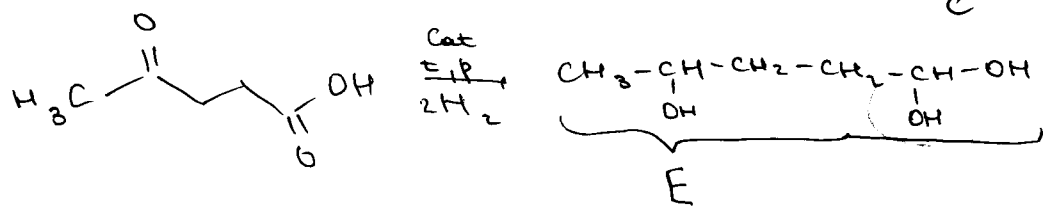 C
O
H₃C OH
O
Cat
t, p
2H₂
CH₃-CH-CH₂-CH₂-CH-OH
OH OH
E